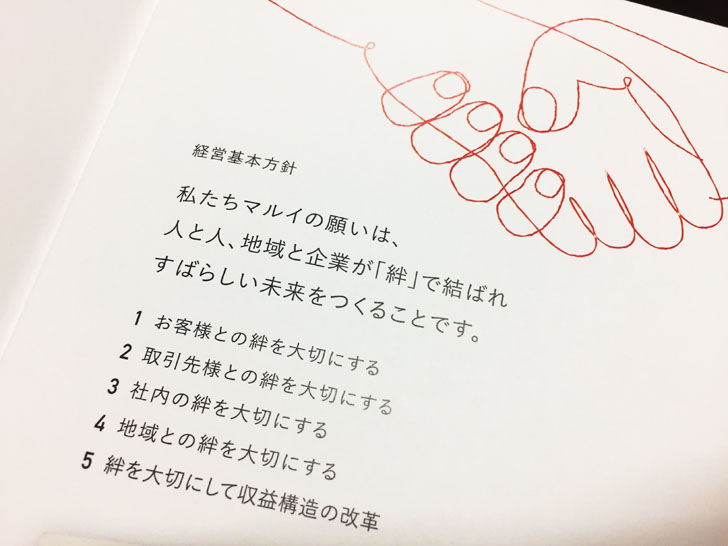 経営基本方針
私たちマルイの願いは、
人と人、地域と企業が「絆」で結ばれ
すばらしい未来をつくることです。
1 お客様との絆を大切にする
2 取引先様との絆を大切にする
3 社内の絆を大切にする
4 地域との絆を大切にする
5 絆を大切にして収益構造の改革